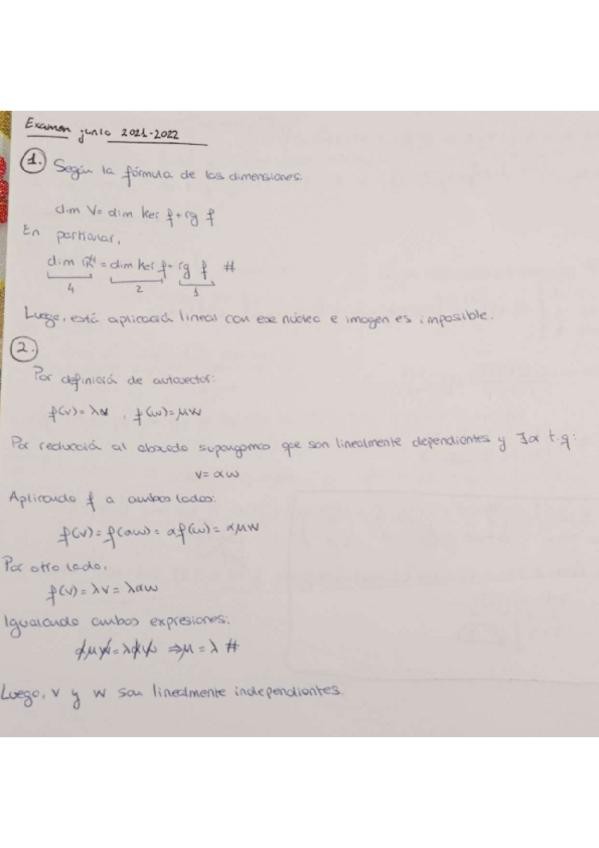 Examen junio 2021-2022
1. Según la fórmula de las dimensiones:
dim V = dim ker f + rg f
En particular,
dim ℝ⁴ = dim ker f + rg f #
4 2 1
Luego, está aplicación lineal con ese núcleo e imagen es imposible.
2.
Por definición de autovector:
f(v) = λv , f(w) = μw
Por reducción al absurdo supongamos que son linealmente dependientes y ∃α t.q:
v = αw
Aplicando f a ambos lados:
f(v) = f(αw) = αf(w) = αμw
Por otro lado,
f(v) = λv = λαw
Igualando ambas expresiones:
αμw = λαw ⇒ μ = λ #
Luego, v y w son linealmente independientes.